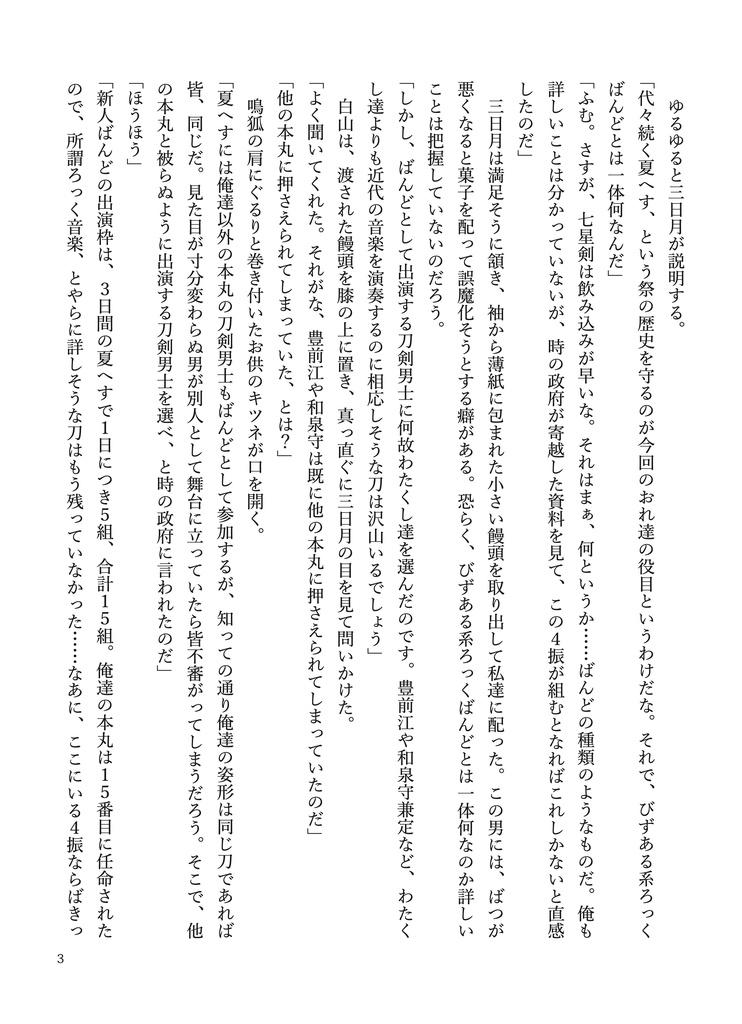 ゆるゆると三日月が説明する。
「代々続く夏へす、という祭の歴史を守るのが今回のおれ達の役目というわけだな。それで、びずある系ろっく
ばんどとは一体何なんだ」
「ふむ。さすが、七星剣は飲み込みが早いな。それはまぁ、何というか……ばんどの種類のようなものだ。俺も
詳しいことは分かっていないが、時の政府が寄越した資料を見て、この４振が組むとなればこれしかないと直感
したのだ」
三日月は満足そうに頷き、袖から薄紙に包まれた小さい饅頭を取り出して私達に配った。この男には、ばつが
悪くなると菓子を配って誤魔化そうとする癖がある。恐らく、びずある系ろっくばんどとは一体何なのか詳しい
ことは把握していないのだろう。
「しかし、ばんどとして出演する刀剣男士に何故わたくし達を選んだのです。豊前江や和泉守兼定など、わたく
し達よりも近代の音楽を演奏するのに相応しそうな刀は沢山いるでしょう」
白山は、渡された饅頭を膝の上に置き、真っ直ぐに三日月の目を見て問いかけた。
「よく聞いてくれた。それがな、豊前江や和泉守は既に他の本丸に押さえられてしまっていたのだ」
「他の本丸に押さえられてしまっていた、とは？」
鳴狐の肩にぐるりと巻き付いたお供のキツネが口を開く。
「夏へすには俺達以外の本丸の刀剣男士もばんどとして参加するが、知っての通り俺達の姿形は同じ刀であれば
皆、同じだ。見た目が寸分変わらぬ男が別人として舞台に立っていたら皆不審がってしまうだろう。そこで、他
の本丸と被らぬように出演する刀剣男士を選べ、と時の政府に言われたのだ」
「ほうほう」
「新人ばんどの出演枠は、３日間の夏へすで１日につき５組、合計１５組。俺達の本丸は１５番目に任命された
ので、所謂ろっく音楽、とやらに詳しそうな刀はもう残っていなかった……なあに、ここにいる４振ならばきっ
3